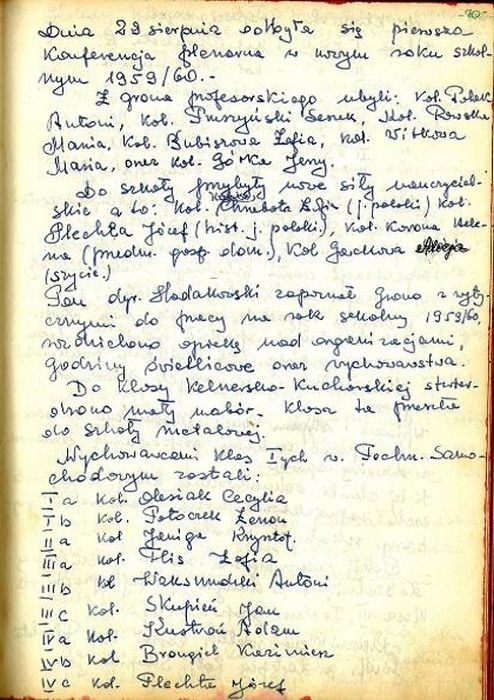 -70-
Dnia 29 sierpnia odbyła się pierwsza
Konferencja plenarna w nowym roku szkol-
nym 1959/60.-
Z grona profesorskiego ubyli: Kol. Polek
Antoni, kol. Smyriński Lenek, Kol. Rowska
Maria, Kol. Bubiszowa Zofia, kol. Witkowa
Maria, oraz kol. Górka Jerzy.
Do szkoły przybyły nowe siły nauczyciel-
skie a to: kol. Chrobota Zofia (j. polski) kol.
Plechta Józef (hist. j. polski), kol. Korona Hele-
na (przedm. gosp. dom.), Kol Gackowa Alicja
(szycie.)
Pan dyr. Sladakowski zapoznał Grono z wyty-
cznymi do pracy na rok szkolny 1959/60,
wzmiankowano opiekę nad organizacjami,
godziny świetlicowe oraz wychowawstwa.
Do klasy Kelnersko-Kucharskiej stwier-
dzono mały nabór. Klasa ta przeszła
do szkoły metalowej.
Wychowawcami klas Tych w Techn. Samo-
chodowym zostali:
I a kol. Olesiak Cecylia
I b kol. Potoczek Zenon
II a kol Janiga Krzysztof.
III a kol. Flis Zofia
III b kol Waksmundzki Antoni
III c kol. Skupień Jan
IV a kol. Kustroń Adam
IV b kol Brongiel Kazimierz
IV c kol. Plechta Józef